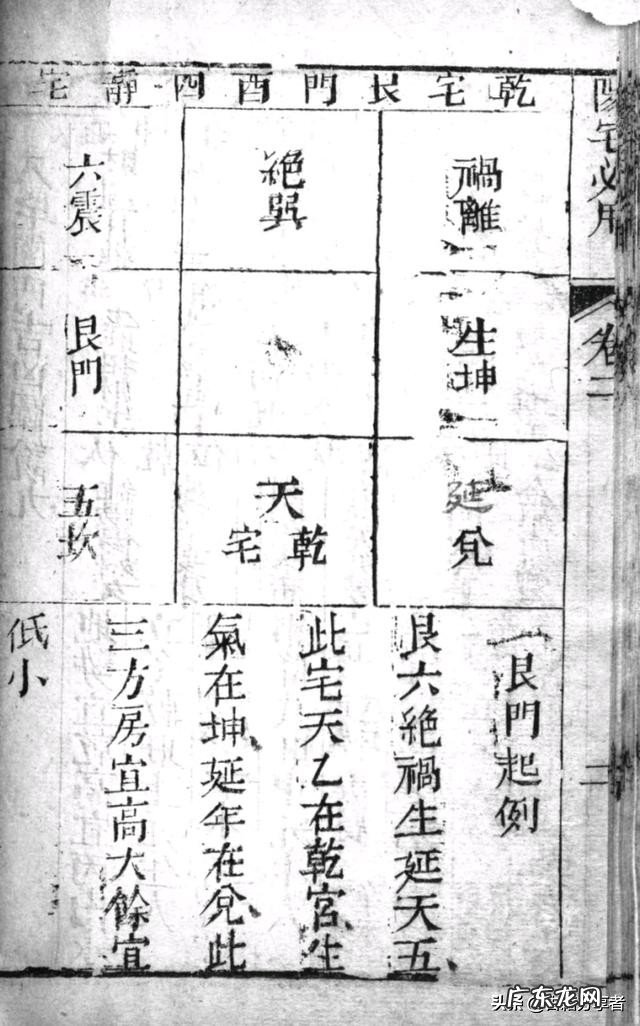 陽宅必用
卷二
二
乾宅艮門酉四靜宅
禍離
絕巽
六震
生坤
艮門
延兌
天
乾宅
五坎
艮門起例
艮六絕禍生延天五、
此宅天乙在乾宮、生
氣在坤、延年在兌、此
三方房宜高大餘宜
低小
广东龙网